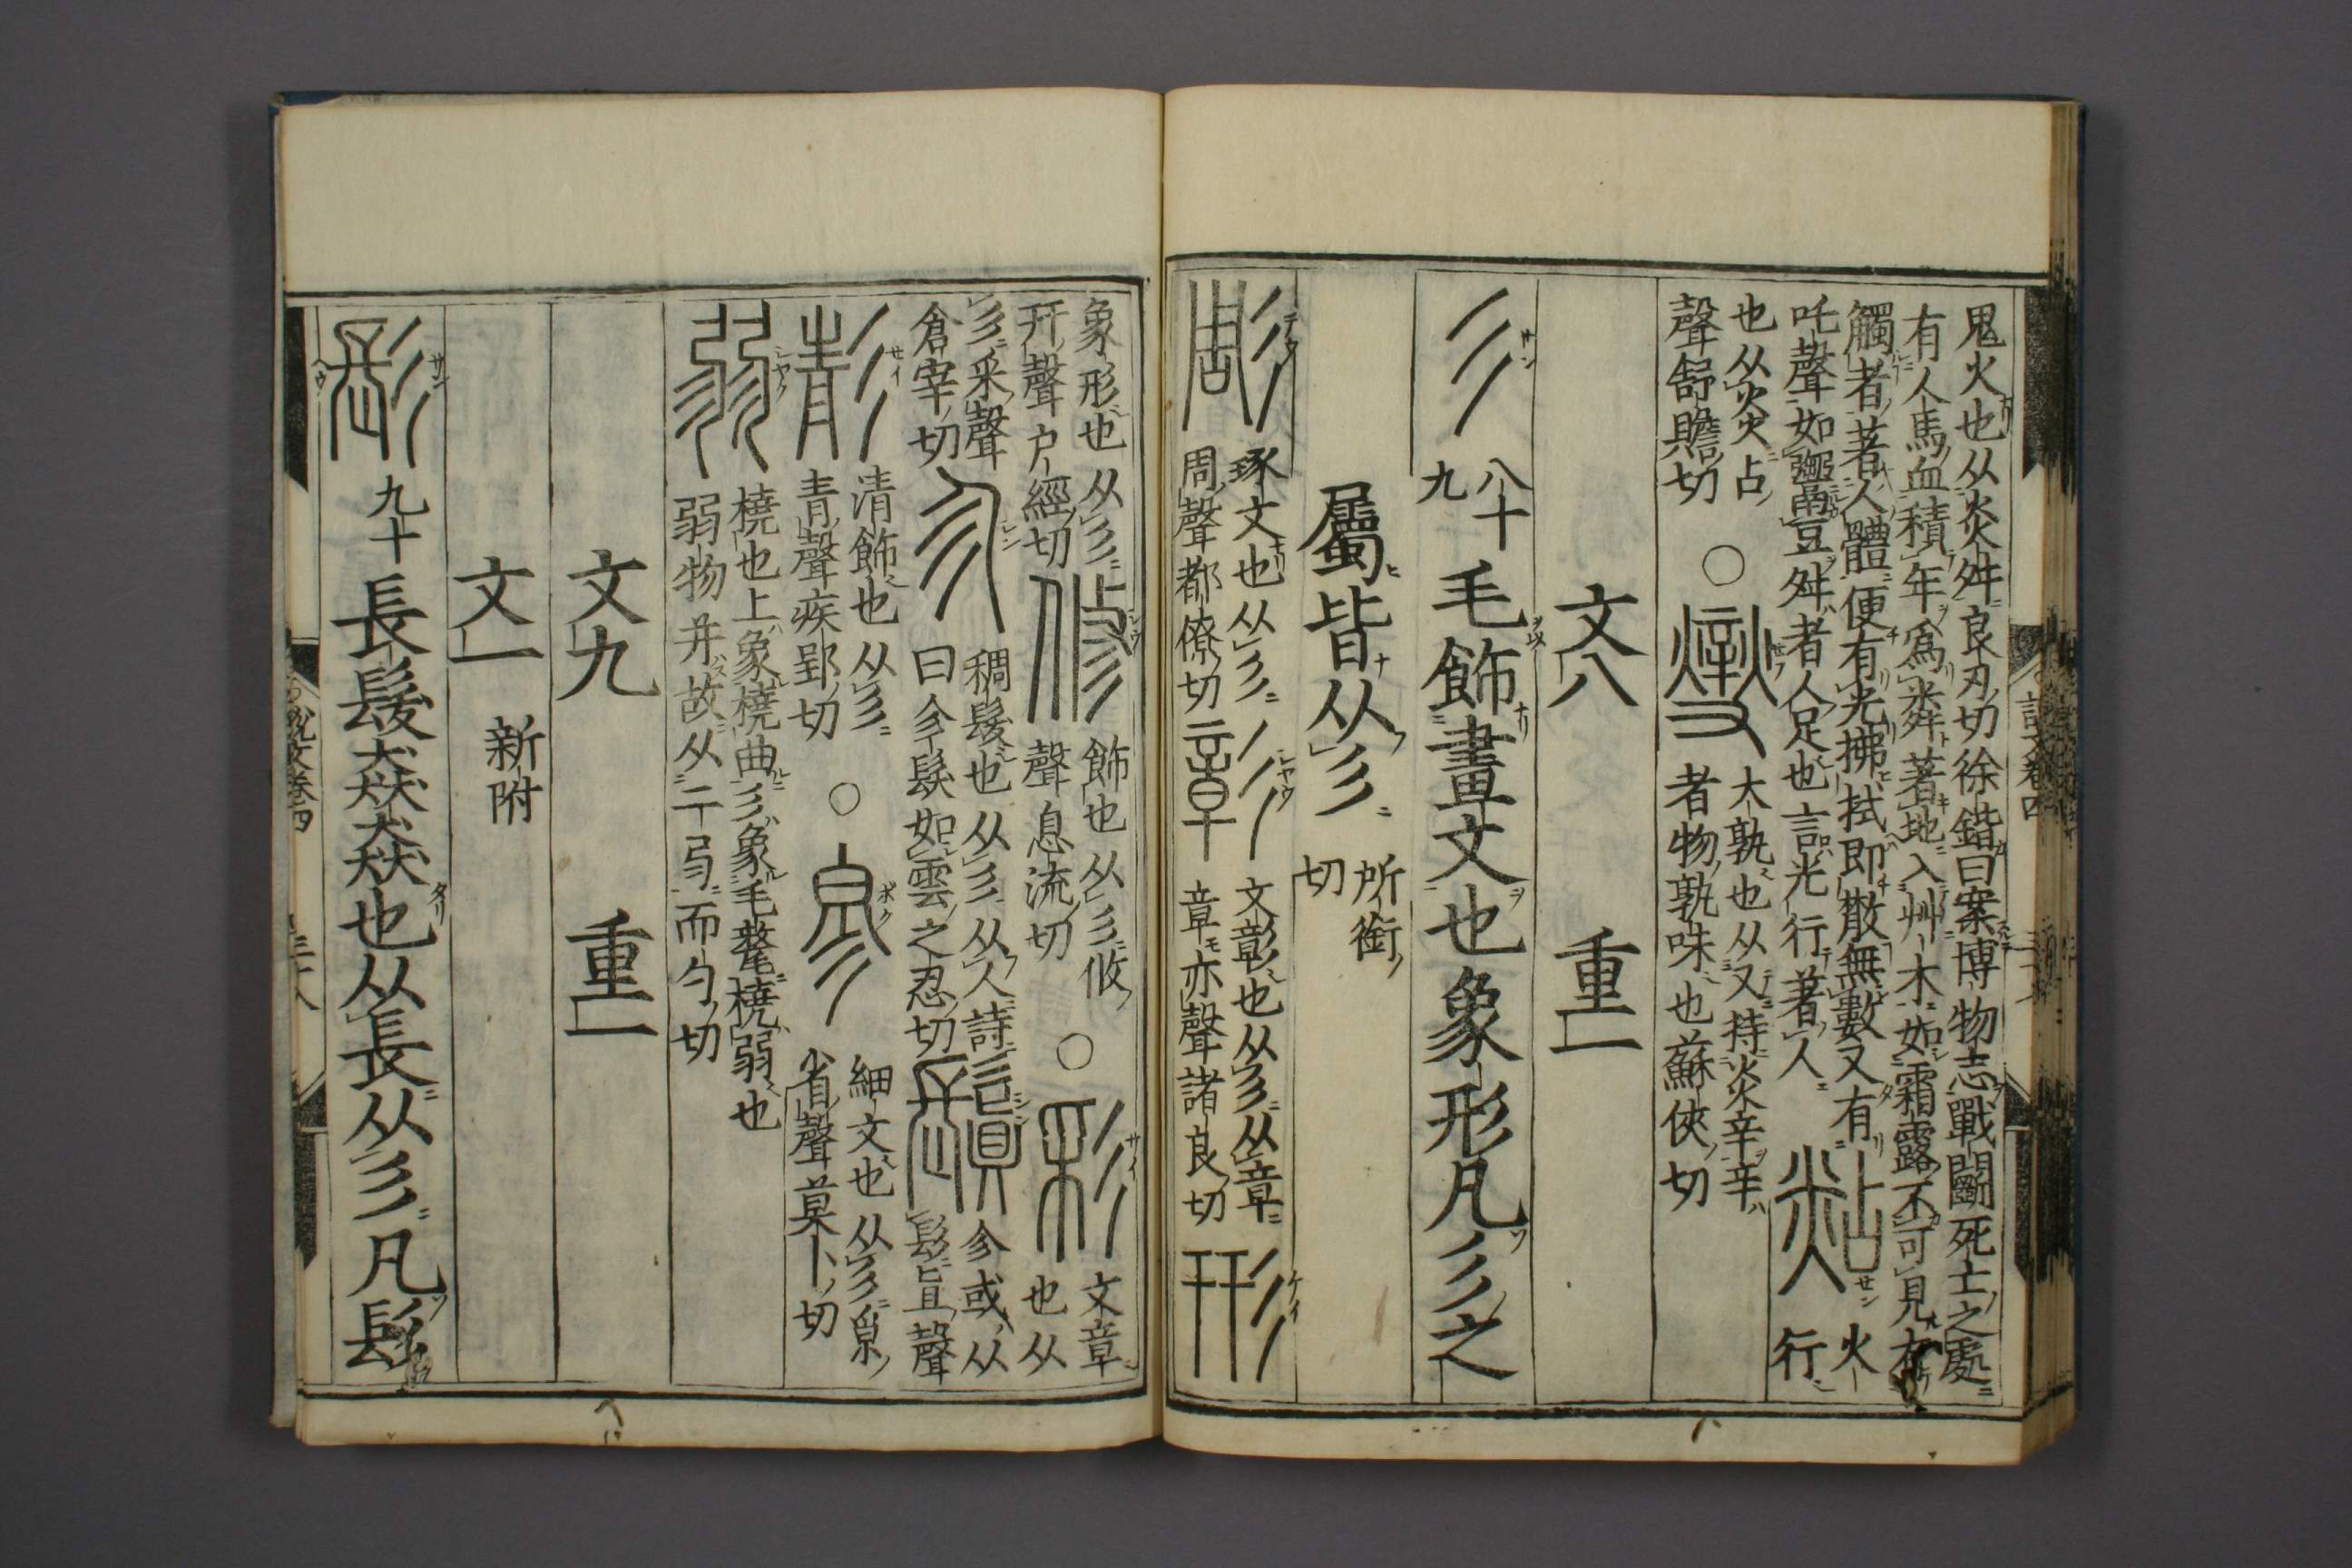 鬼火也从炎舛良刃切徐鍇曰案博物志戰鬭死亡之處
有人馬血積年爲粦著地入艸木如霜露不可見有
觸者著人體便有光拂拭即散無數又有
吒聲如𩱧豆舛者人足也言光行著人
𪐩
火
行
也从炎占
聲舒贍切
○
燮
大孰也从又持炎辛辛
者物孰味也蘇俠切
文八 重一
彡
八十
九
毛飾畫文也象形凡彡之
屬皆从彡
所銜
切
彫
琢文也从彡
周聲都僚切
彰
文彰也从彡从章
章亦聲諸良切
形
象形也从彡
幵聲户經切
修
飾也从彡攸
聲息流切
○
彩
文章
也从
彡采聲
倉宰切
㐱
稠髮也从彡从人詩
曰㐱髮如雲之忍切
鬒
㐱或从
髟眞聲
彭
清飾也从彡
青聲疾郢切
○
㣎
細文也从彡𡭴
省聲莫卜切
弱
橈也上象橈曲彡象毛氂橈弱也
弱物并故从二弓而勺切
文九 重一
文一 新附
髟
九十
長髮猋猋也从長从彡凡髟
説文卷四